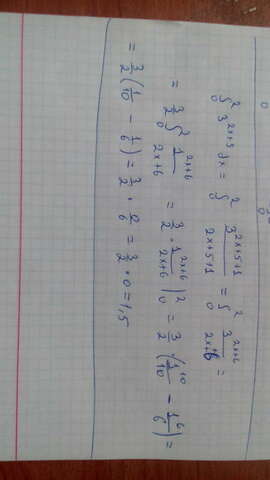 ∫₀² 3^(2x+5) dx = ∫₀² 3^(2x+5+1)/(2x+5+1) = ∫₀² 3^(2x+6)/(2x+6) =
= 3/2 ∫₀² 1^(2x+6)/(2x+6) = 3/2 · 1^(2x+6)/(2x+6) |₀² = 3/2 (1^10/10 - 1^6/6) =
= 3/2 (1/10 - 1/6) = 3/2 · 0/6 = 3/2 · 0 = 1,5